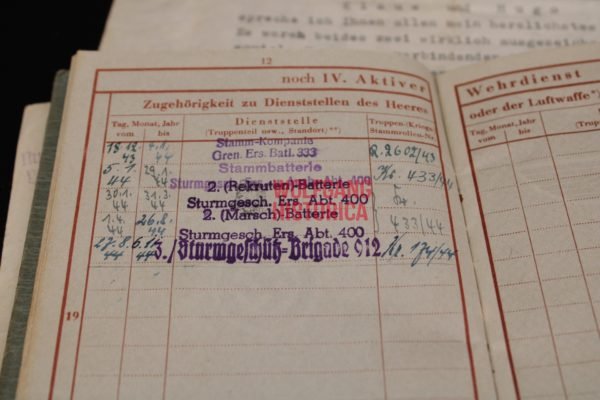 Klaus und Hugo
spreche ich Ihnen allen mein herzlichstes
Es waren beides zwei wirklich
12
noch IV. Aktiver
Zugehörigkeit zu Dienststellen des Heeres
Tag, Monat, Jahr
von bis
Dienststelle
(Truppenteil usw., Standort, **)
Truppen-(Kriegs-
Stammrollen-Nr.
13.12. 43 4.1. 44 Stamm-Kompanie
Gren. Ers. Batl. 333 2602/43
5.1. 44 29.1. 44 Stammbatterie
Abt. 400 433/44
30.1. 44 31.3. 44 2. (Rekruten)-Batterie
Sturmgesch. Ers. Abt. 400
1.4. 44 26.8. 44 2. (Marsch)-Batterie
Sturmgesch. Ers. Abt. 400 433/44
27.8. 44 3./Sturmgeschütz-Brigade 912 Nr. 174/44
19
WOLFGANG
HISTORICA
Wehrdienst
oder der Luftwaffe*)
Tag, Monat, Jahr
von bis